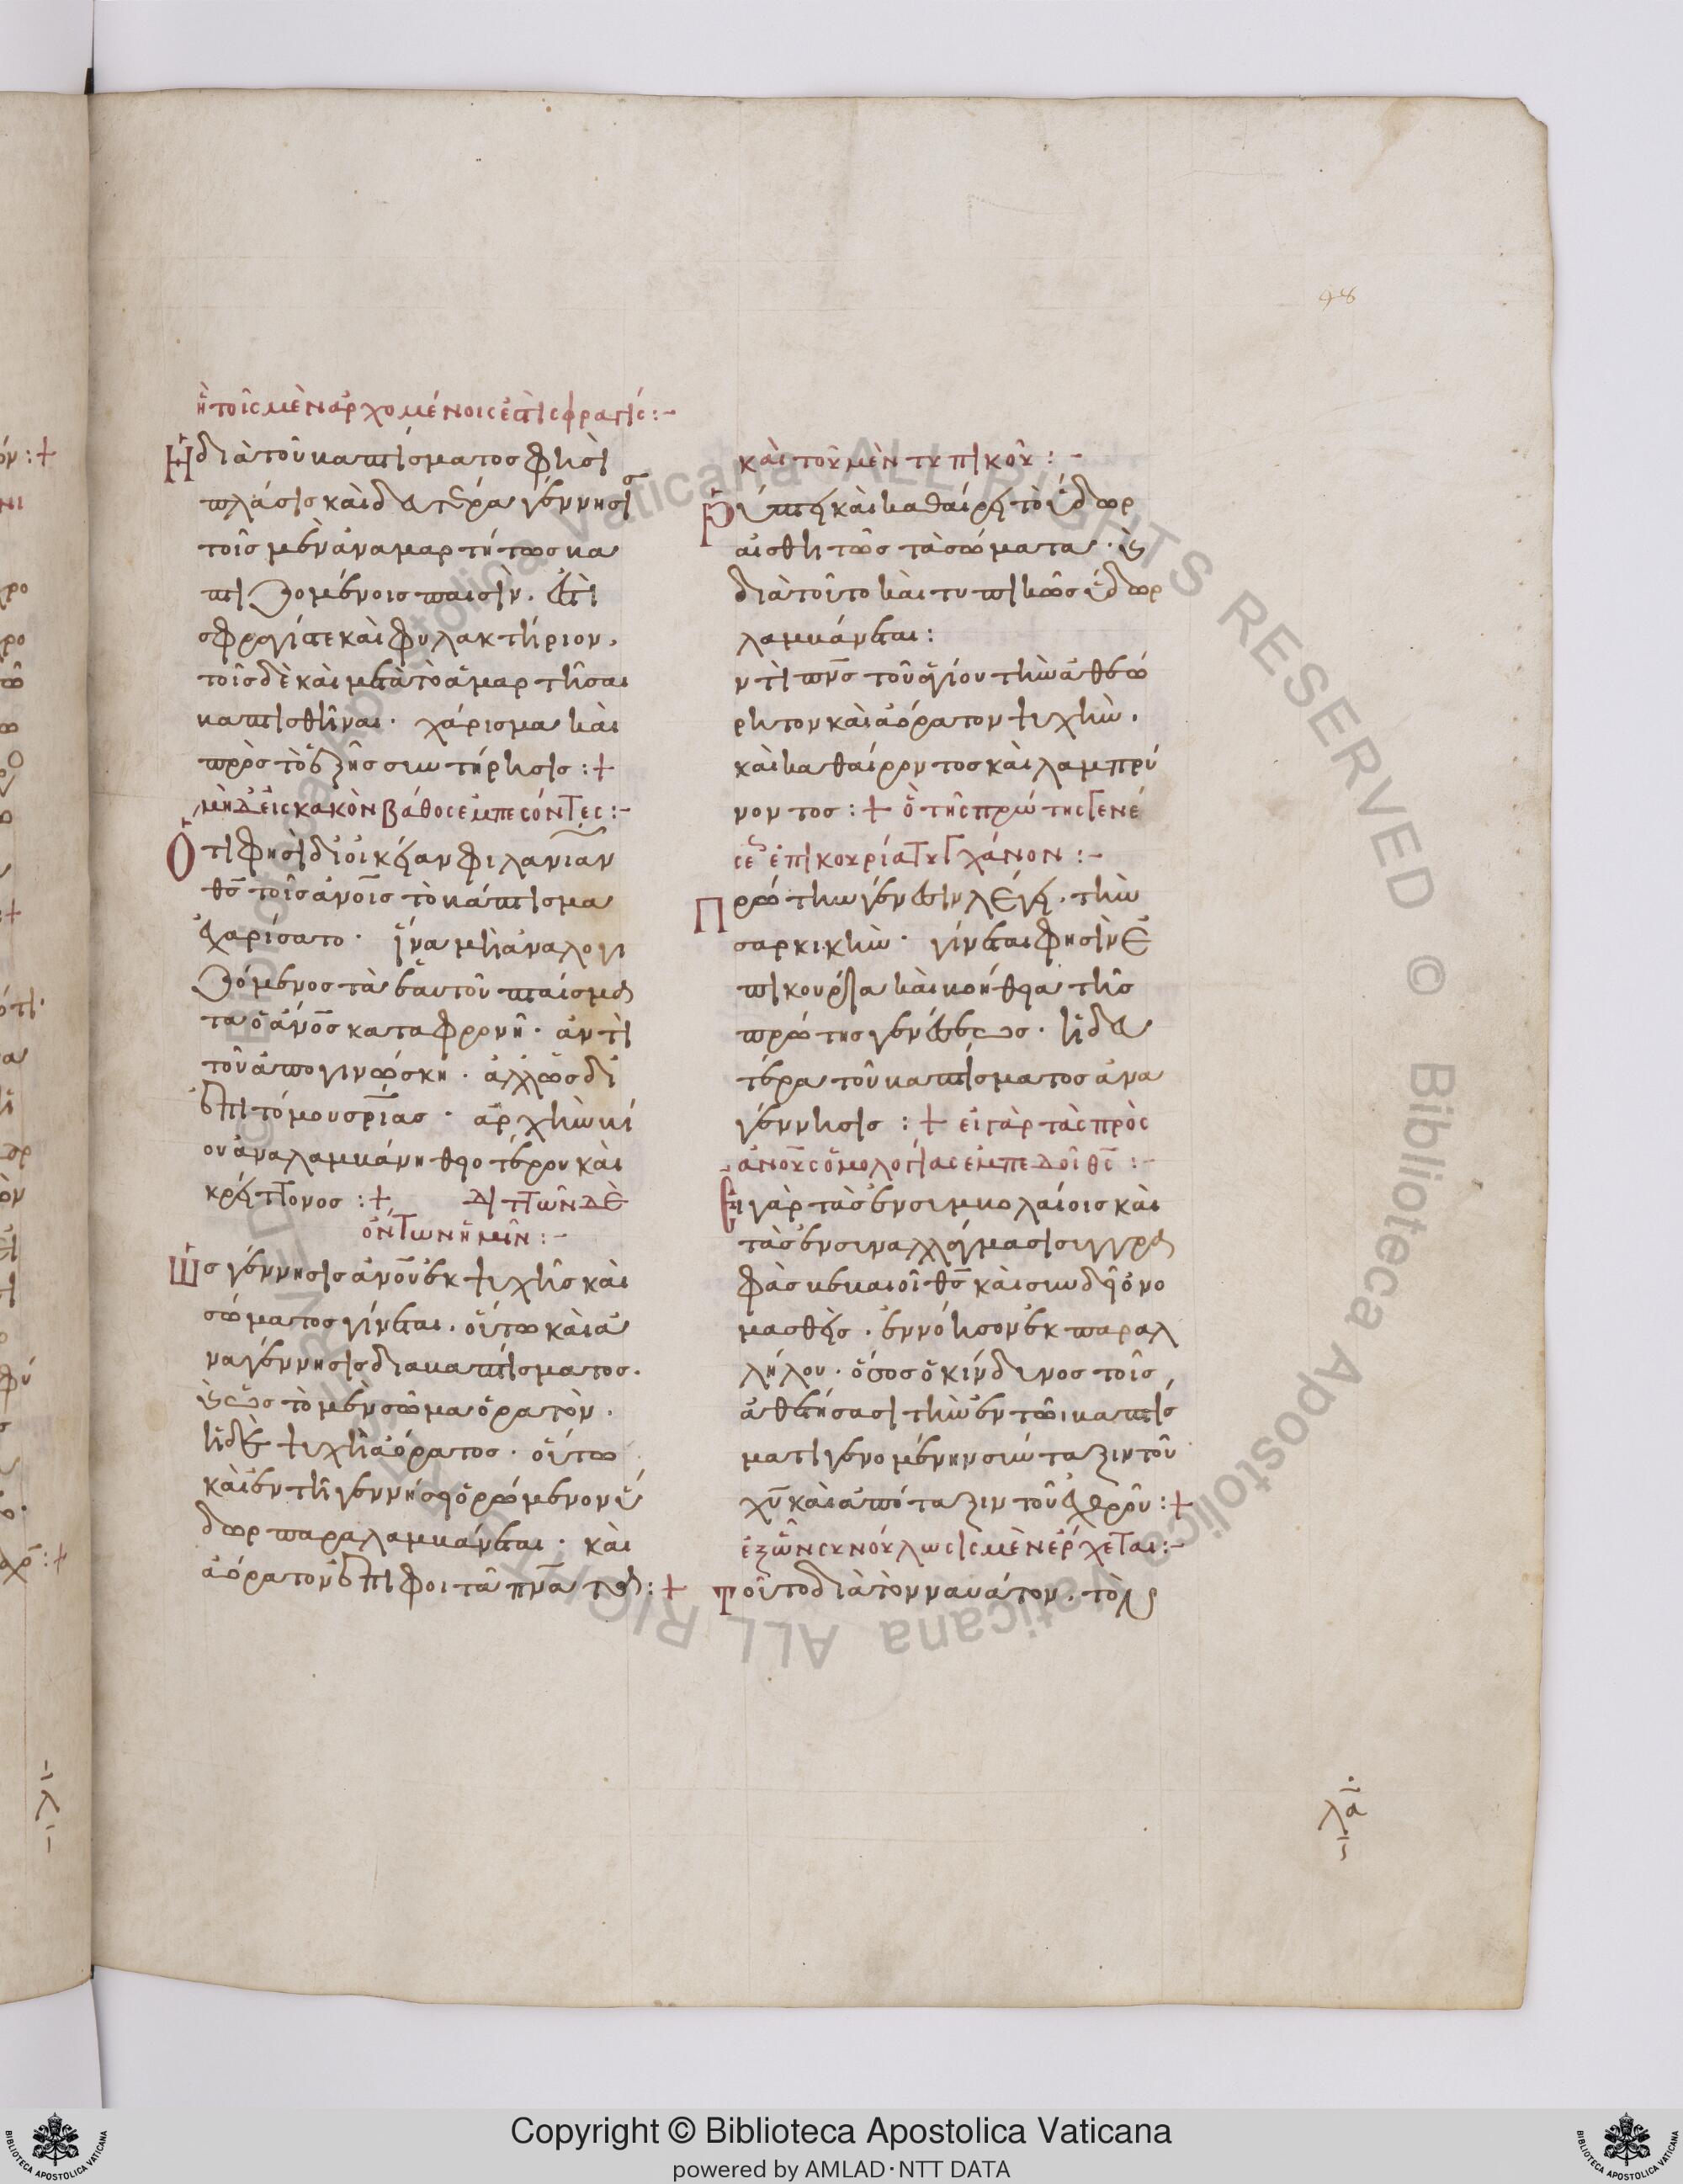 98
ἢ τοῖς μὲν ἀρχομένοις ἐστὶ σφραγίς :-
Ἡ διὰ τοῦ βαπτίσματος φησὶ
πλάσις καὶ δευτέρα γέννησις
τοῖς μὲν ἀναμαρτήτως βα
πτιζομένοις παισὶν. ἐστὶ
σφραγίς τε καὶ φυλακτήριον.
τοῖς δὲ καὶ μετὰ τὸ ἁμαρτῆσαι
βαπτισθῆναι. χάρισμα καὶ
πρὸς τὸ ἑξῆς συντήρησις :+
μὴ δὲ εἰς κακὸν βάθος ἐμπεσόντες :-
Ὅτι φησὶ δι' οἰκείαν φιλανίαν
θς τοῖς ἀνοις τὸ βάπτισμα
ἐχαρίσατο. ἵνα μὴ ἀναλογι
ζόμενος τὰ ἑαυτοῦ πταίσμα
τα ὁ ἀνος καταφρονῆ. ἀντὶ
τοῦ ἀπογινώσκη. ἄλλως δὲ
ἐπὶ τὸ μου σριας. ἀρχὴν βί
ου ἀναλαμβάνη θειοτέρου καὶ
κρείττονος :+ διττῶν δὲ
ὄντων ἡμῖν :-
Ὡς γέννησις ἀνου ἐκ ψυχῆς καὶ
σώματος γίνεται. οὕτω καὶ ἀ
ναγέννησις δια βαπτίσματος.
καὶ ὡς τὸ μὲν σῶμα ὁρατὸν.
ἡ δὲ ψυχὴ ἀόρατος. οὕτω
καὶ ἐν τῆ γεννήσει ὁρώμενον ὕ
δωρ παραλαμβάνεται. καὶ
ἀόρατον ἐπιφοιτᾶ πνα
καὶ τοῦ μὲν τυπικοῦ :-
Ῥύπτει καὶ καθαίρει τὸ ὕδωρ
αἰσθητῶς τὰ σώματα. καὶ
διὰ τοῦτο καὶ τυπικῶς ὕδωρ
λαμβάνεται:
ντι πνς τοῦ ἁγίου τὴν ἀθεώ
ρητον καὶ ἀόρατον ψυχὴν.
καὶ καθαίροντος καὶ λαμπρύ
νοντος :+ ὃ τῆς πρώτης γενέ
σεως ἐπικουρία τυγχάνον :-
Πρώτην γένεσιν λέγει. τὴν
σαρκικὴν. γίνεται φησὶν ἐ
πικουρία καὶ βοήθεια τῆς
πρώτης γενέσεως. ἡ δευ
τέρα τοῦ βαπτίσματος ἀνα
γέννησις :+ εἰ γὰρ τὰς πρὸς
ἀνους ὁμολογίας ἐμπεδοῖ θς :-
Εἰ γὰρ τὰς ἐν συμβολαίοις καὶ
τὰς ἐν συναλλάγμασι συγγρα
φὰς βεβαιοῖ θς καὶ συνθήκη ὀνο
μασθεὶς. ἐννόησον ἐκ παραλ
λήλου. ὅσος ὁ κίνδυνος τοῖς
ἀθετήσασι τὴν ἐν τῶι βαπτίσ
ματι γενομένην σύνταξιν τοῦ
χυ καὶ ἀπόταξιν τοῦ ἐχθροῦ :+
ἐξ ὧν συνούλωσις μὲν ἔρχεται :-
Τοῦτο διὰ τὸν ναυάτον.
λα
Copyright © Biblioteca Apostolica Vaticana
powered by AMLAD·NTT DATA